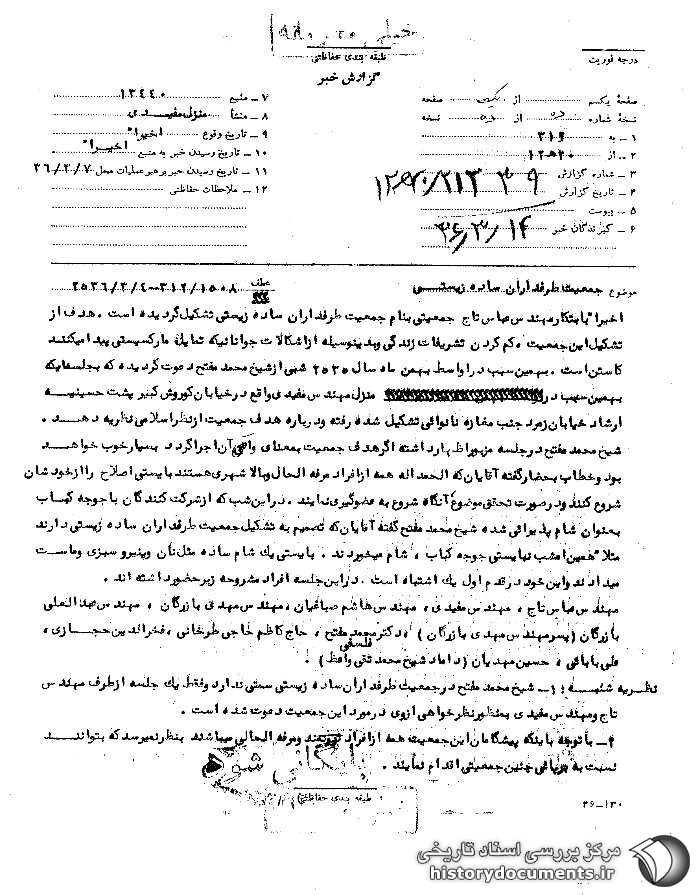 خیلی
طبقه بندی حفاظتی
گزارش خبر
درجه فوریت
صفحهٔ یکم از یک صفحه
نسخهٔ شماره از نسخه
۱ ـ به ۳۱۲
۲ ـ از ۲۰ ه ۱۲
۳ ـ شماره گزارش
۴ ـ تاریخ گزارش
۵ ـ پیوست
۶ ـ گیرندگان خبر ۳۶/۳/۱۴
۷ ـ منبع ۱۳۴۴۰
۸ ـ منشأ منزل مفیدی
۹ ـ تاریخ وقوع اخیرا"
۱۰ ـ تاریخ رسیدن خبر به منبع اخیرا"
۱۱ ـ تاریخ رسیدن خبر برهبر عملیات محل ۳۶/۳/۷
۱۲ ـ ملاحظات حفاظتی
موضوع جمعیت طرفداران ساده زیستی عطف ۳۱۲/۱۵۰۸-۲۵۳۶/۳/۴
اخیرا" بابتکار مهندس عباس تاج جمعیتی بنام جمعیت طرفداران ساده زیستی تشکیل گردیده است . هدف از
تشکیل این جمعیت ، کم کردن تشریفات زندگی و بدینوسیله از اشکالات جوانانیکه تمایل مارکسیستی پیدا میکنند
کاستن است . بهمین سبب در اواسط بهمن ماه سال ۲۵۳۵ شهی از شیخ محمد مفتح دعوت گردیده که بجلسه‌ایکه
بهمین سبب در منزل مهندس مفیدی واقع در خیابان کوروش کبیر پشت حسینیه
ارشاد خیابان زمرد جنب مغازه نانوائی تشکیل شده رفته و درباره هدف جمعیت از نظر اسلامی نظریه دهد .
شیخ محمد مفتح در جلسه مزبور اظهار داشته اگر هدف جمعیت بمعنای واقعی آن اجرا گردد بسیار خوب خواهد
بود و خطاب بحضار گفته آقایان که الحمداله همه از افراد مرفه الحال و بالا شهری هستند بایستی اصلاح را از خودشان
شروع کنند و در صورت تحقق موضوع آنگاه شروع به عضوگیری نمایند . در این شب که از شرکت کنندگان با جوجه کباب
بعنوان شام پذیرائی شده شیخ محمد مفتح گفته آقایان که تصمیم به تشکیل جمعیت طرفداران ساده زیستی دارند
مثلا" همین امشب نبایستی جوجه کباب ، شام میخوردند . بایستی یک شام ساده مثل نان و پنیر و سبزی و ماست
میدادند و این خود در قدم اول یک اشتباه است . در این جلسه افراد مشروحه زیر حضور داشته اند .
مهندس عباس تاج ، مهندس مفیدی ، مهندس هاشم صباغیان ، مهندس مهدی بازرگان ، مهندس عبدالعلی
بازرگان (پسر مهندس مهدی بازرگان ) ، دکتر محمد مفتح ، حاج کاظم حاجی طرخانی ، فخرالدین حجازی ،
علی بابائی ، حسین مهدیان (داماد شیخ محمد تقی فلسفی واعظ) .
نظریه شنبه : ۱ـ شیخ محمد مفتح در جمعیت طرفداران ساده زیستی سمتی ندارد و فقط یک جلسه از طرف مهندس
تاج و مهندس مفیدی بمنظور نظرخواهی از وی در مورد این جمعیت دعوت شده است .
۲ـ با توجه باینکه پیشگامان این جمعیت همه از افراد ثروتمند و مرفه الحال میباشند بنظر نمیرسد که بتوانند
نسبت به برپائی چنین جمعیتی اقدام نمایند .
بایگانی شود
طبقه بندی حفاظتی
۳۶-۱۳۰
مرکز بررسی اسناد تاریخی
historydocuments.ir